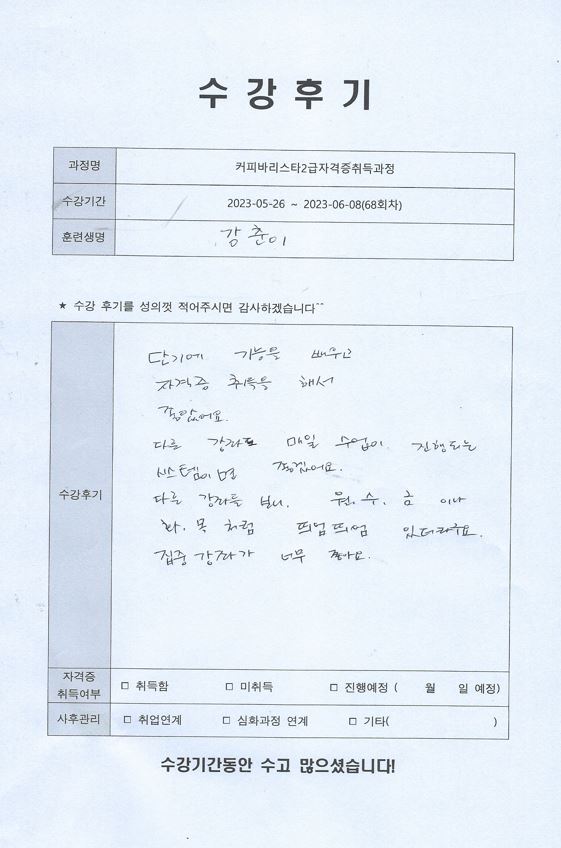 수강후기
과정명 커피바리스타2급자격증취득과정
수강기간 2023-05-26 ~ 2023-06-08(68회차)
훈련생명 강춘이
★ 수강 후기를 성의껏 적어주시면 감사하겠습니다^^
수강후기
단기에 기능을 배우고
자격증 취득을 해서
좋았어요.
다른 강좌도 매일 수업이 진행되는
시스템이면 좋겠어요.
다른 강좌를 보니. 월.수.금 이나
화.목 처럼 띄엄띄엄 있더라구요.
집중강좌가 너무 좋아요.
자격증 취득여부 □ 취득함 □ 미취득 □ 진행예정 ( 월 일 예정)
사후관리 □ 취업연계 □ 심화과정 연계 □ 기타( )
수강기간동안 수고 많으셨습니다!